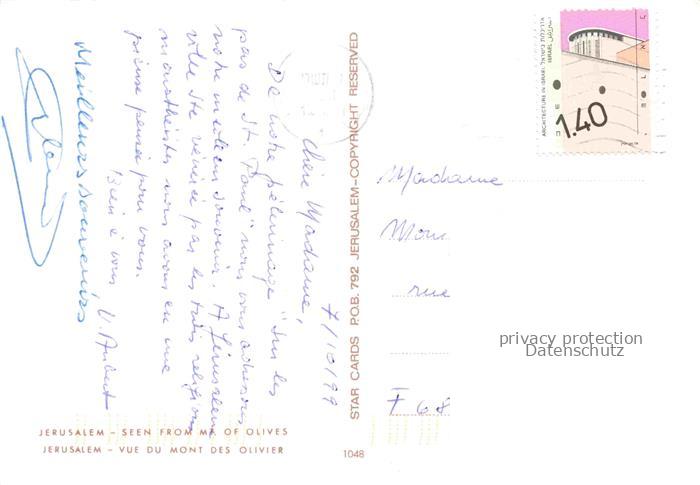 7/10/99
Chère Madame,
"De notre pèlerinage "sur les
pas de St. Paul" nous vous adressons
notre meilleur souvenir. A Jérusalem
ville Ste vénérée par les trois religions
monothéistes nous avons eu une
pieuse pensée pour vous.
Bien à vous
Meilleurs souvenirs
JERUSALEM – SEEN FROM MT. OF OLIVES
JERUSALEM – VUE DU MONT DES OLIVIER
1048
STAR CARDS P.O.B. 792 JERUSALEM–COPYRIGHT RESERVED
ARCHITECTURE IN ISRAEL
אדריכלות בישראל
ISRAEL
1.40
Madame
rue
F 68
privacy protection
Datenschutz